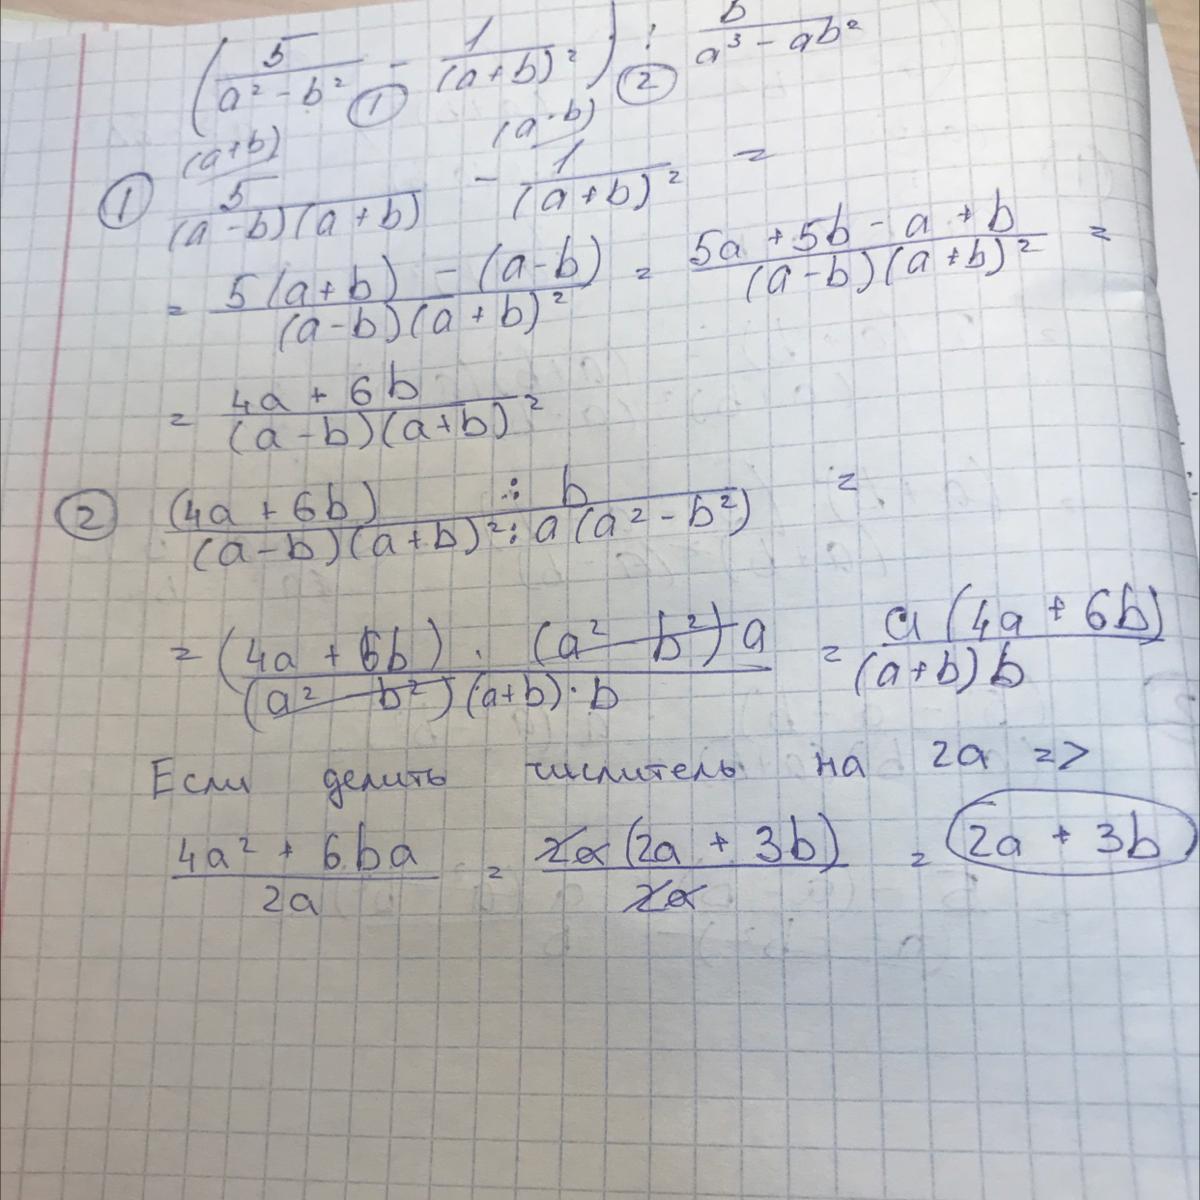 (5/(a² - b²) - 1/(a+b)²) : b/(a³ - ab²)
① ②
(a+b) (a-b)
① 5/((a-b)(a+b)) - 1/(a+b)² =
= (5(a+b) - (a-b))/((a-b)(a+b)²) = (5a + 5b - a + b)/((a-b)(a+b)²) =
= (4a + 6b)/((a-b)(a+b)²)
② (4a + 6b)/((a-b)(a+b)²) : b/(a(a² - b²)) =
= ((4a + 6b) · (a² - b²)a)/((a² - b²)(a+b) · b) = a(4a + 6b)/((a+b)b)
Если делить числитель на 2a =>
(4a² + 6ba)/2a = 2a(2a + 3b)/2a = 2a + 3b